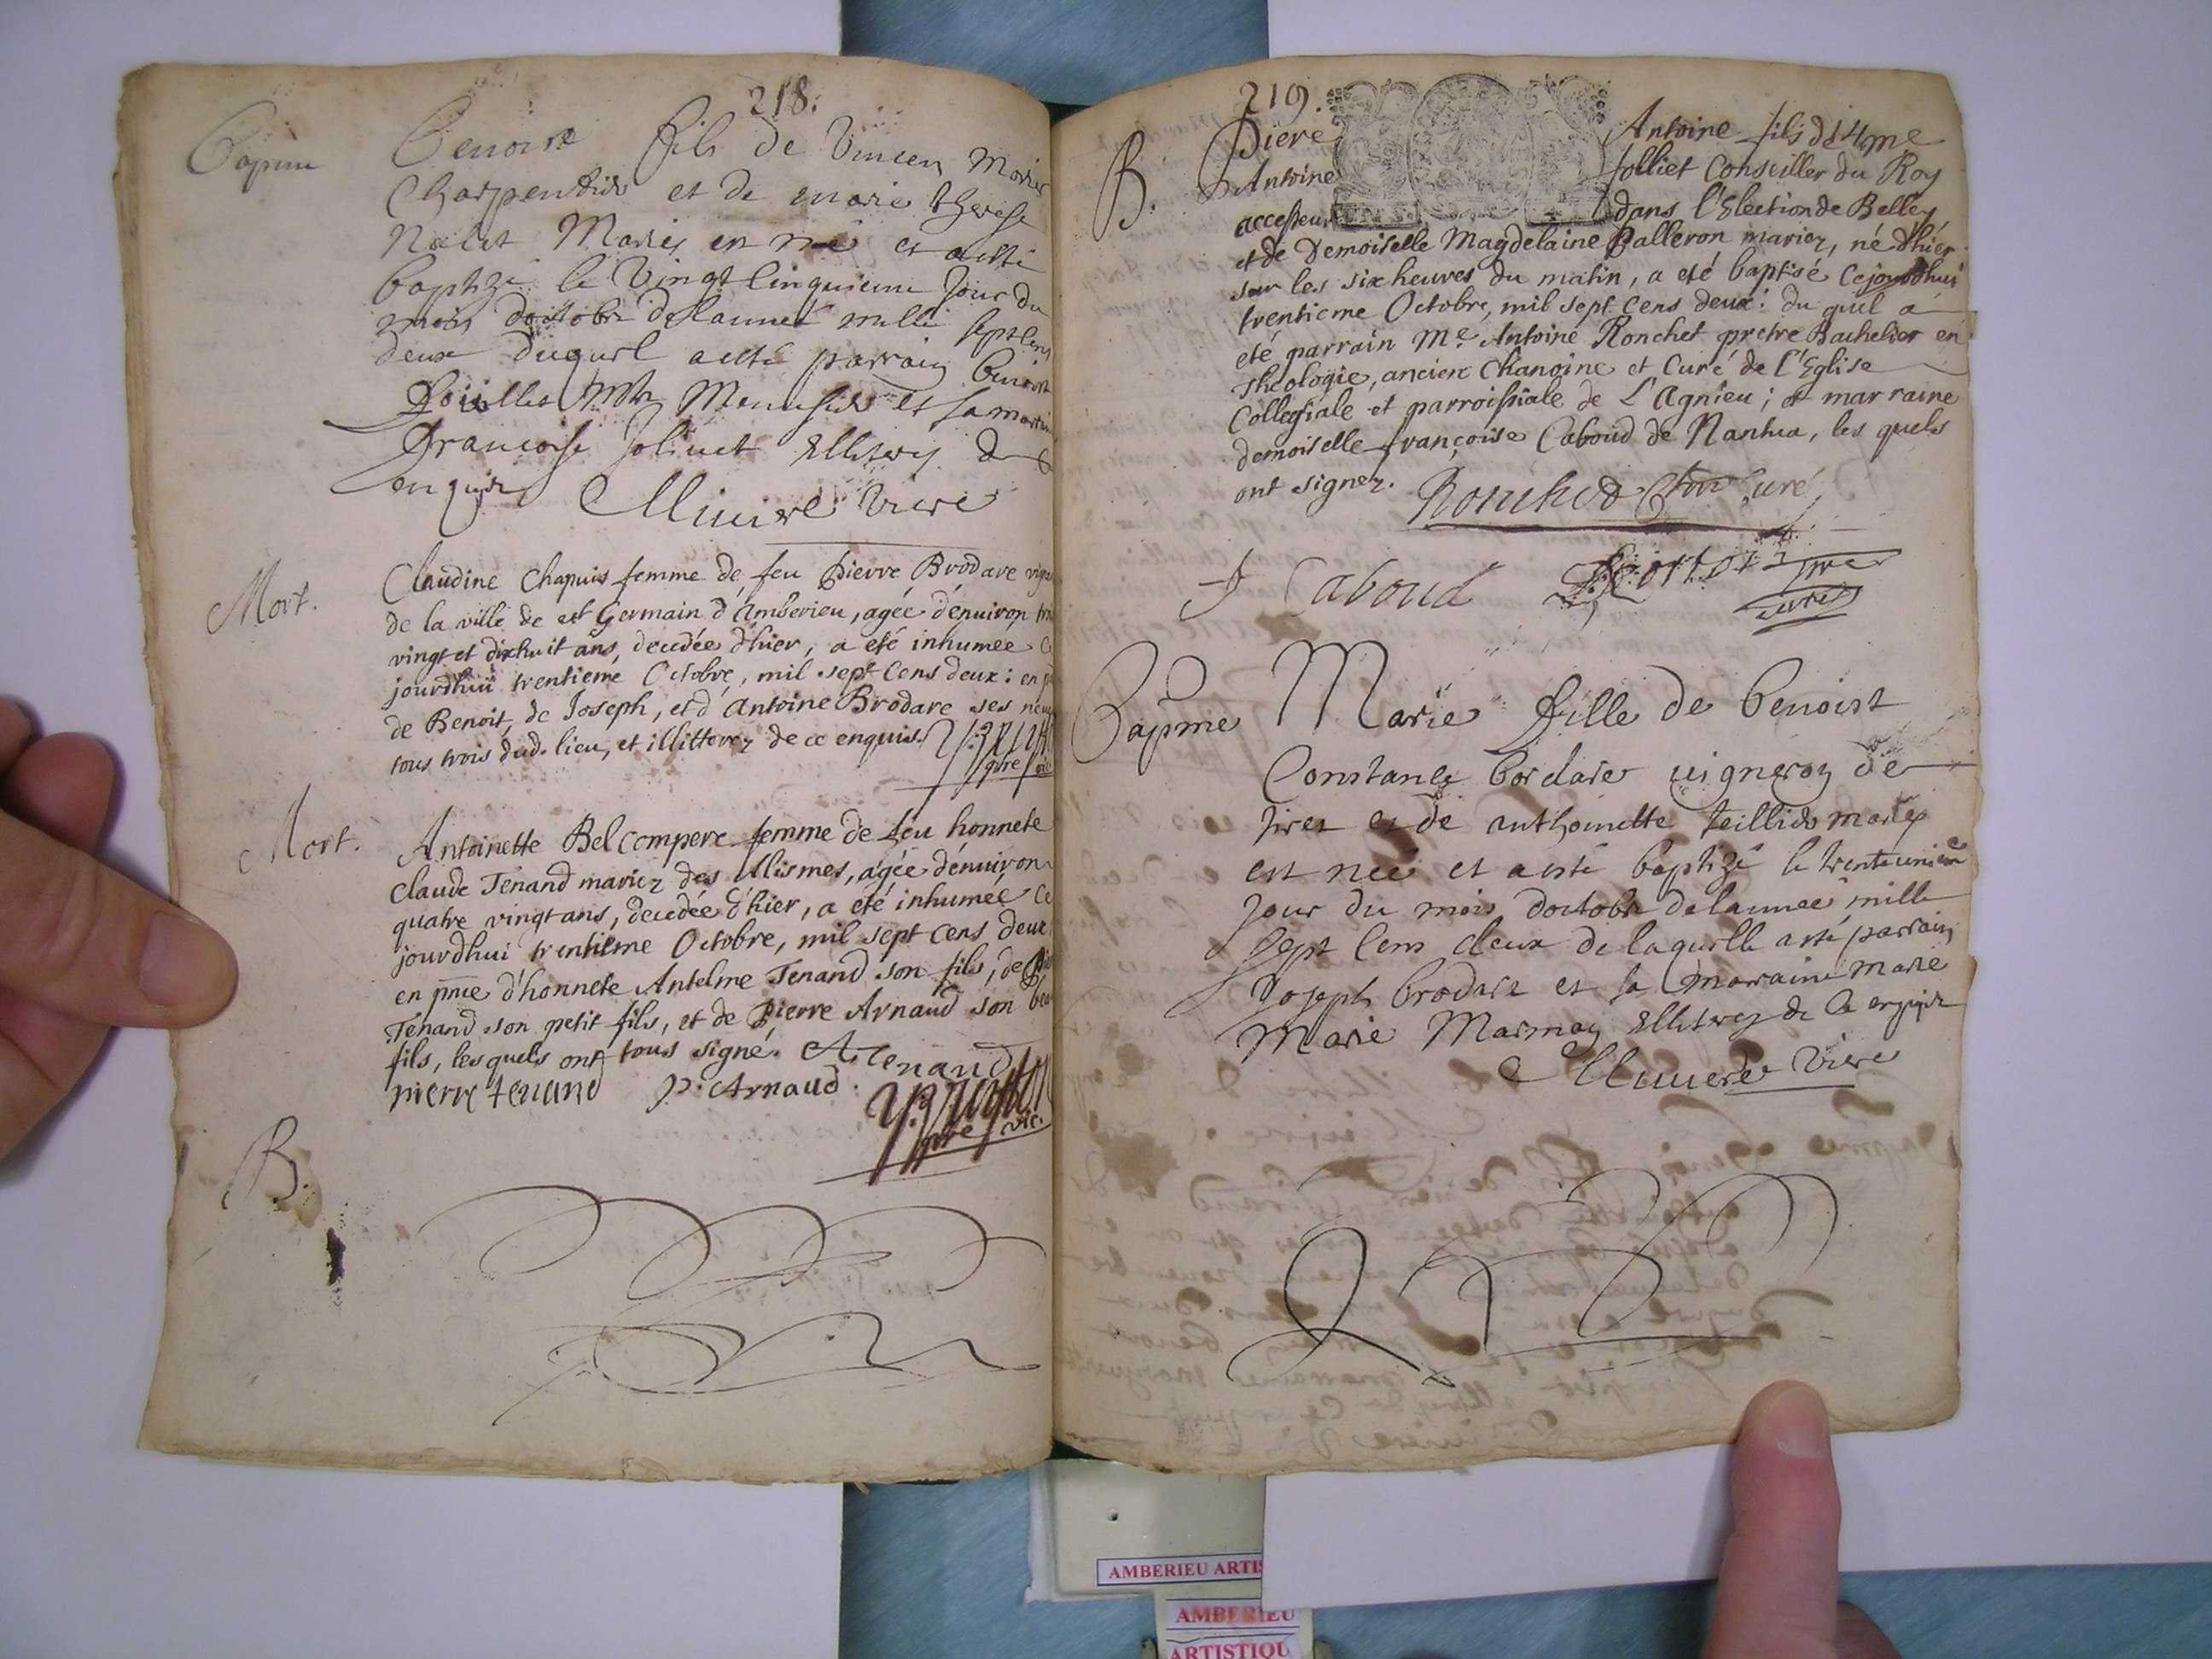 218.
Bapme
Benoist fils de Vincen
Charpentier et de marie therese
Mariés est né et a esté
baptizé le Vingt cinquieme Jour du
mois doctobre delannee mille sept cens
deux duquel a esté parrain benoist
et sa marraine
francoise Jolivet Illiterez de ce
enquis
vicre
Mort.
Claudine Chapuis femme de feu Pierre Brodare
de la ville de st Germain d'Amberieu, agée d'enuiron
vingt et dixhuit ans, decedée d'hier, a eté inhumee
jourdhui trentieme Octobre, mil sept cens deux: en
de Benoit, de Joseph, et d'Antoine Brodare ses
tous trois dud. lieu, et illitterez de ce enquis.
pre
Mort.
Antoinette Belcompere femme de feu honnete
Claude Tenand mariez des Allismes, agée d'enuiron
quatre vingt ans, decedée d'hier, a eté inhumée ce
jourdhui trentieme Octobre, mil sept cens deux
en pnce d'honnete Antelme Tenand son fils, de
Tenand son petit fils, et de Pierre Arnaud son
fils, lesquels ont tous signé. A Tenand
pierre tenand P. Arnaud.
pre vic.
B.
219.
B. Piere Antoine fils de
Antoine Jolliet Conseiller du Roy
accesseur dans l'Election de Belley
et de Demoiselle Magdelaine Balleron mariez, né d'hier
sur les six heures du matin, a eté baptisé cejourdhui
trentieme Octobre, mil sept cens deux: du quel a
eté parrain Me. Antoine Ronchet pretre Bachelier en
Theologie, ancien Chanoine et Curé de l'Eglise
Collegiale et parroissiale de L'Agnieu; et marraine
demoiselle françoise Caboud de Nantua, les quels
ont signez. Ronchet Curé
f Caboud
Bapme Marie fille de benoist
Constance bordare vigneron de
tiret et de anthoinette teillier mariez
est neé et a esté baptizé le trente unieme
Jour du mois doctobre delanneé mille
sept cens deux de laquelle a esté parrain
Joseph brodare et sa marraine marie
Marie Marmon Illiterez de ce enquis
vicre
AMBERIEU ARTIS
AMBERIEU
ARTISTIQU